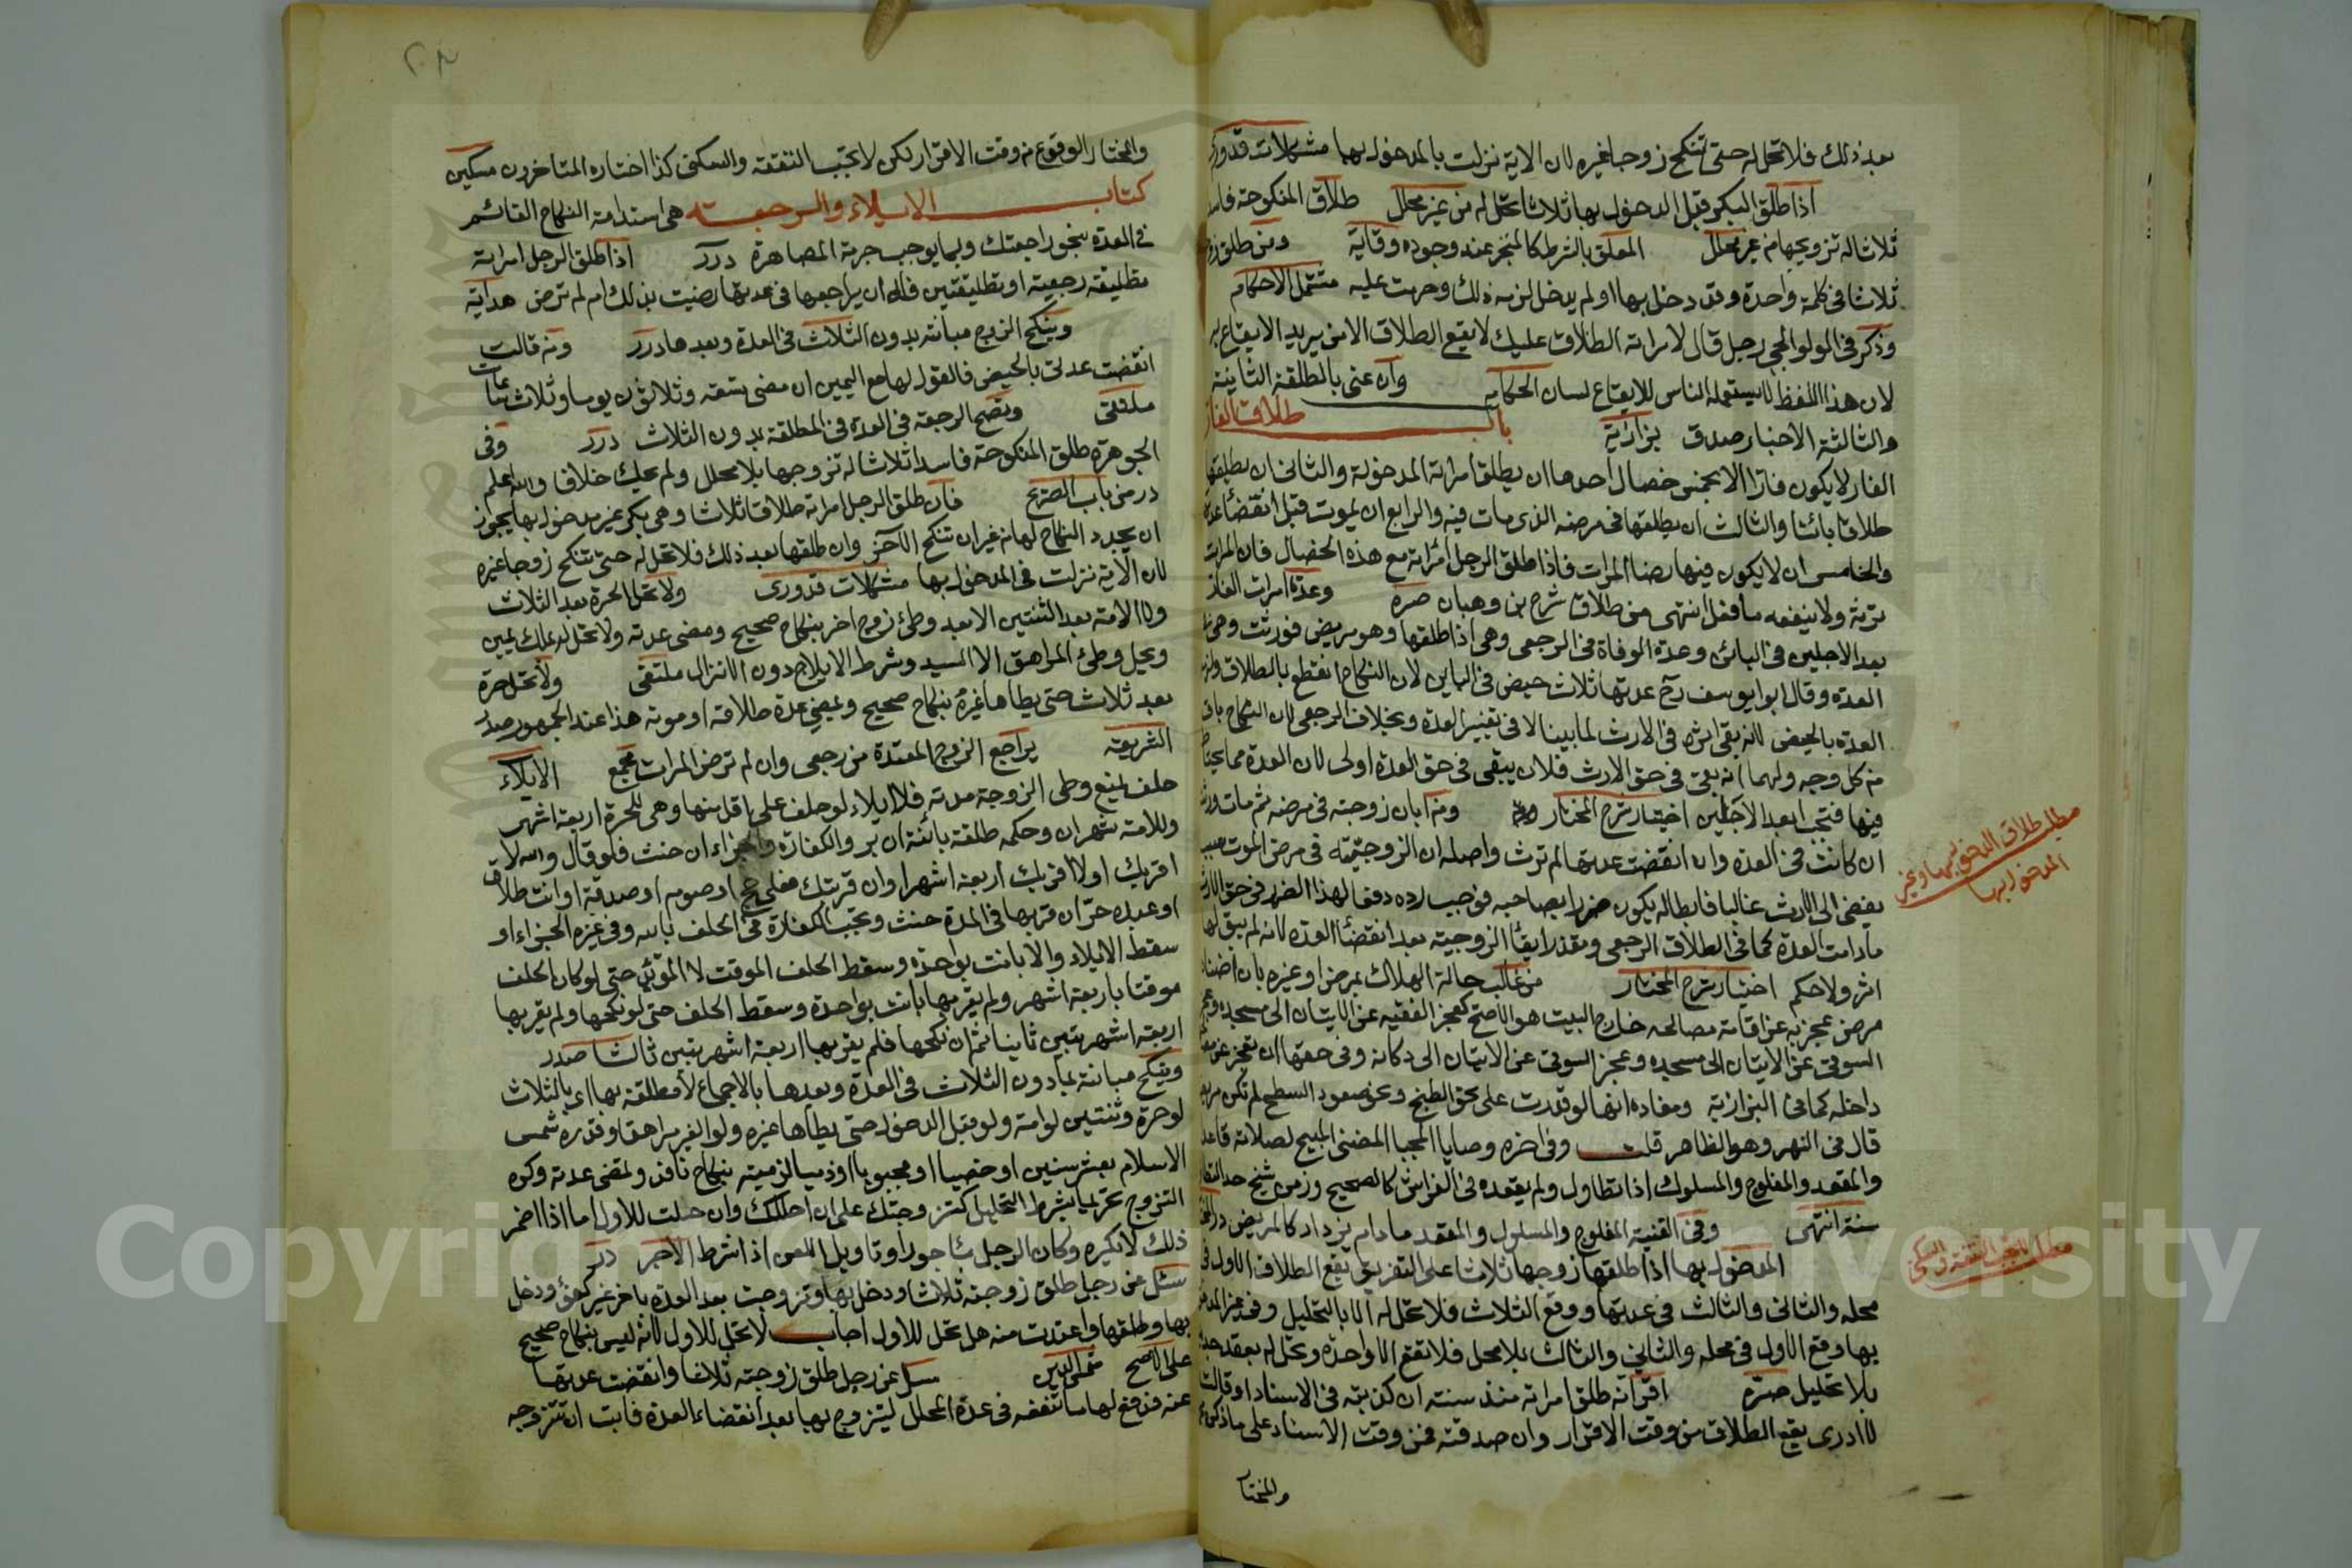 بعد ذلك فلا تحل له حتى تنكح زوجا غيره لان الاية نزلت بالمدخول بها مشكلات قدوري
اذا طلق البكر قبل الدخول بها ثلاثا تحل له من غير محلل طلاق المنكوحة فاسدا
ثلاثا له تزويجها من غير محلل المعلق بالشرط كالمنجز عند وجوده وقاية ومن طلق
ثلاثا في كلمة واحدة وقد دخل بها او لم يدخل لزمه ذلك وحرمت عليه مشتمل الاحكام
وذكر في الولوالجي رجل قال لامراته الطلاق عليك لا يقع الطلاق الا من يريد الايقاع به
لان هذا اللفظ لا يستعمله الناس للايقاع لسان الحكام وان عنى بالطلقة الثانية
والثالثة الاخبار صدق بزازية باب طلاق الفار
الفار لا يكون فارا الا بخمس خصال احدها ان يطلق امراته المدخولة والثاني ان يطلقها
طلاقا بائنا والثالث ان يطلقها في مرضه الذي مات فيه والرابع ان يموت قبل انقضاء عدة
والخامس ان لا يكون فيها رضا المرات فاذا طلق الرجل امراته مع هذه الخصال فان المرات
ترثه ولا ينفعه ما فعل انتهى من طلاق شرح بن وهبان صره وعدة امرات الفار
بعد الاجلين في البائن وعدة الوفاة في الرجعي وهي اذا طلقها وهو مريض فورثت وهي
العدة وقال ابو يوسف رح عدتها ثلاث حيض في البائن لان النكاح انقطع بالطلاق ولزم
العدة بالحيض لانه بقي اثره في الارث لما بينا لا في تغيير العدة وبخلاف الرجعي لان النكاح باق
من كل وجه ولهما انه بقي في حق الارث فلان يبقى في حق العدة اولى لان العدة مما يحتاط
فيها فتجب ابعد الاجلين اختيار شرح المختار ومن ابان زوجته في مرضه ثم مات ورثت
ان كانت في العدة وان انقضت عدتها لم ترث واصله ان الزوجية في مرض الموت سبب
يفضي الى الارث غالبا فابطاله يكون ضررا بصاحبه فوجب رده دفعا لهذا الضرر في حق الارث
ما دامت العدة كما في الطلاق الرجعي وتعذر ابقاء الزوجية بعد انقضاء العدة لانه لم يبق لها
اثر ولا حكم اختيار شرح المختار من غالب حالة الهلاك بمرض او غيره بان اضناه
مرض عجز به عن اقامة مصالحه خارج البيت هو الاصح كعجز الفقيه عن الاتيان الى مسجده وعجز
السوقي عن الاتيان الى مسجده وعجز السوقي عن الاتيان الى دكانه وفي حقها ان تعجز عن
داخله كما في البزازية ومفاده انها لو قدرت على نحو الطبخ دون صعود السطح لم تكن مريضة
قال في النهر وهو الظاهر قلت وفي اخره وصايا المجتبا المضني المبيح لصلاته قاعدا
والمقعد والمفلوج والمسلول اذا تطاول ولم يقعده في الفراش كالصحيح ورمز شيخ حد التطاول
سنة انتهى وفي القنية المفلوج والمسلول والمقعد ما دام يزداد كالمريض
المدخول بها اذا طلقها زوجها ثلاثا على التفريق يقع الطلاق الاول في
محله والثاني والثالث في عدتها ووقع الثلاث فلا تحل له الا بالتحليل وفي غير المدخول
بها وقع الاول في محله والثاني والثالث بلا محل فلا تقع الا واحدة وتحل له بعقد جديد
بلا تحليل صره اقر انه طلق امراته منذ سنة ان كذبته في الاسناد او قالت
لا ادري يقع الطلاق من وقت الاقرار وان صدقته فمن وقت الاسناد على ما ذكر
والمختار
مطلب طلاق الدخول بها وغير
المدخول بها
مطلب لا تجب النفقة والسكنى
والمختار الوقوع من وقت الاقرار لكن لا تجب النفقة والسكنى كذا اختاره المتاخرون مسكين
كتاب الايلاء والرجعة هي استدامة النكاح القائم
في العدة بنحو راجعتك وبما يوجب حرمة المصاهرة درر اذا طلق الرجل امراته
تطليقة رجعية او تطليقتين فله ان يراجعها في عدتها رضيت بذلك ام لم ترض هداية
وينكح الزوج مبانته بدون الثلاث في العدة وبعدها درر ومن قالت
انقضت عدتي بالحيض فالقول لها مع اليمين ان مضى تسعة وثلاثون يوما وثلاث ساعات
ملتقى وتصح الرجعة في العدة في المطلقة بدون الثلاث درر وفي
الجوهرة طلق المنكوحة فاسدا ثلاثا له تزوجها بلا محلل ولم يحك خلاف والله اعلم
در من باب الصريح فان طلق الرجل امراته طلاقا ثلاثا وهي بكر غير مدخول بها يجوز
ان يجدد النكاح لها من غير ان تنكح الآخر وان طلقها بعد ذلك فلا تحل له حتى تنكح زوجا غيره
لان الآية نزلت في المدخول بها مشكلات قدوري ولا تحل الحرة بعد الثلاث
ولا الامة بعد الثنتين الا بعد وطئ زوج اخر بنكاح صحيح ومضى عدته ولا تحل له بملك يمين
ويحل وطئ المراهق الا السيد وشرط الايلاج دون الانزال ملتقى ولا تحل حرة
بعد ثلاث حتى يطاها غيره بنكاح صحيح وتمضي عدة طلاقه او موته هذا عند الجمهور صدر
الشريعة يراجع الزوج المعتدة من رجعي وان لم ترض المرات مجمع الايلاء
حلف يمنع وطي الزوجة مدته فلا ايلاء لو حلف على اقل منها وهي للحرة اربعة اشهر
وللامة شهران وحكمه طلقة بائنة ان بر والكفارة والجزاء ان حنث فلو قال والله لا
اقربك اولا اقربك اربعة اشهر او ان قربتك فعلي حج او صوم او صدقة او انت طلاق
او عبده حر ان قربها في المدة حنث وتجب الكفارة في الحلف بالله وفي غيره الجزاء او
سقط الايلاء والا بانت بواحدة وسقط الحلف الموقت لا المؤبد حتى لو كان الحلف
موقتا باربعة اشهر ولم يقربها بانت بواحدة وسقط الحلف حتى لو نكحها ولم يقربها
اربعة اشهر تبين ثانيا ثم ان نكحها فلم يقربها اربعة اشهر تبين ثالثا صدر
وينكح مبانته بما دون الثلاث في العدة وبعدها بالاجماع لا مطلقة بها اي بالثلاث
لو حرة وثنتين لو امة ولو قبل الدخول حتى يطاها غيره ولو الغير مراهقا وقدره شمس
الاسلام بعشر سنين او خصيا او مجبوبا او ذميا لزمية بنكاح نافذ وتمضي عدته وكره
التزوج تحريما بشرط التحليل كتزوجتك على ان احللك وان حلت للاول اما اذا اضمر
ذلك لا يكره وكان الرجل مأجورا وتاويل اللعن اذا شرط الاجر در
سئل عن رجل طلق زوجته ثلاثا ودخل بها وتزوجت بعد العدة باخر غير كفؤ ودخل
بها وطلقها واعتدت منه هل تحل للاول اجاب لا تحل للاول لانه ليس بنكاح صحيح
على الاصح سئل عن رجل طلق زوجته ثلاثا وانقضت عدتها
عنه فدفع لها ما تنفقه في عدة المحلل ليتزوج بها بعد انقضاء العدة فابت ان تتزوجه
Copyright © University